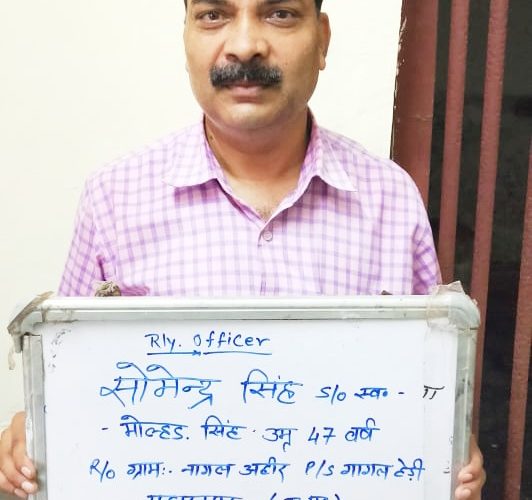 Rly. Officer
सोमेन्द्र सिंह s/o स्व॰ -
- मोल्हड़. सिंह. उम्र 47 वर्ष
R/o ग्राम:- नागल अहीर P/S गागलहेड़ी